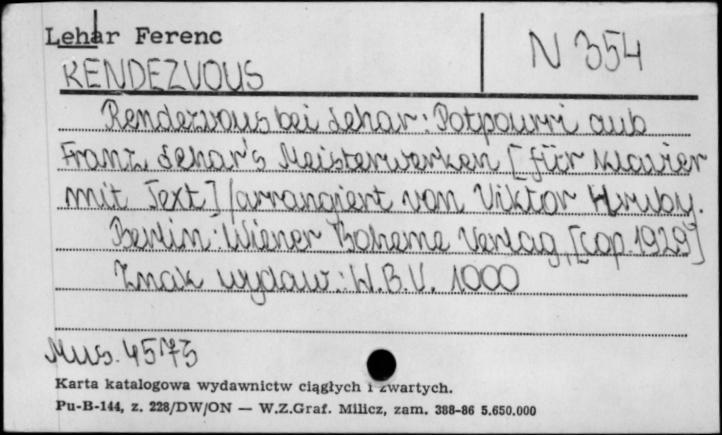 Lehar Ferenc
N 354
RENDEZVOUS
Rendezvous bei Lehar: Potpourri aus
Franz Lehar's Meisterwerken [für Klavier
mit Text] / arrangiert von Viktor Hruby.
Berlin: Wiener Boheme Verlag, [cop. 1929]
Znak wydaw.: W.B.V. 1000
Mus. 4573
Karta katalogowa wydawnictw ciągłych i zwartych.
Pu-B-144, z. 228/DW/ON — W.Z.Graf. Milicz, zam. 388-86 5.650.000